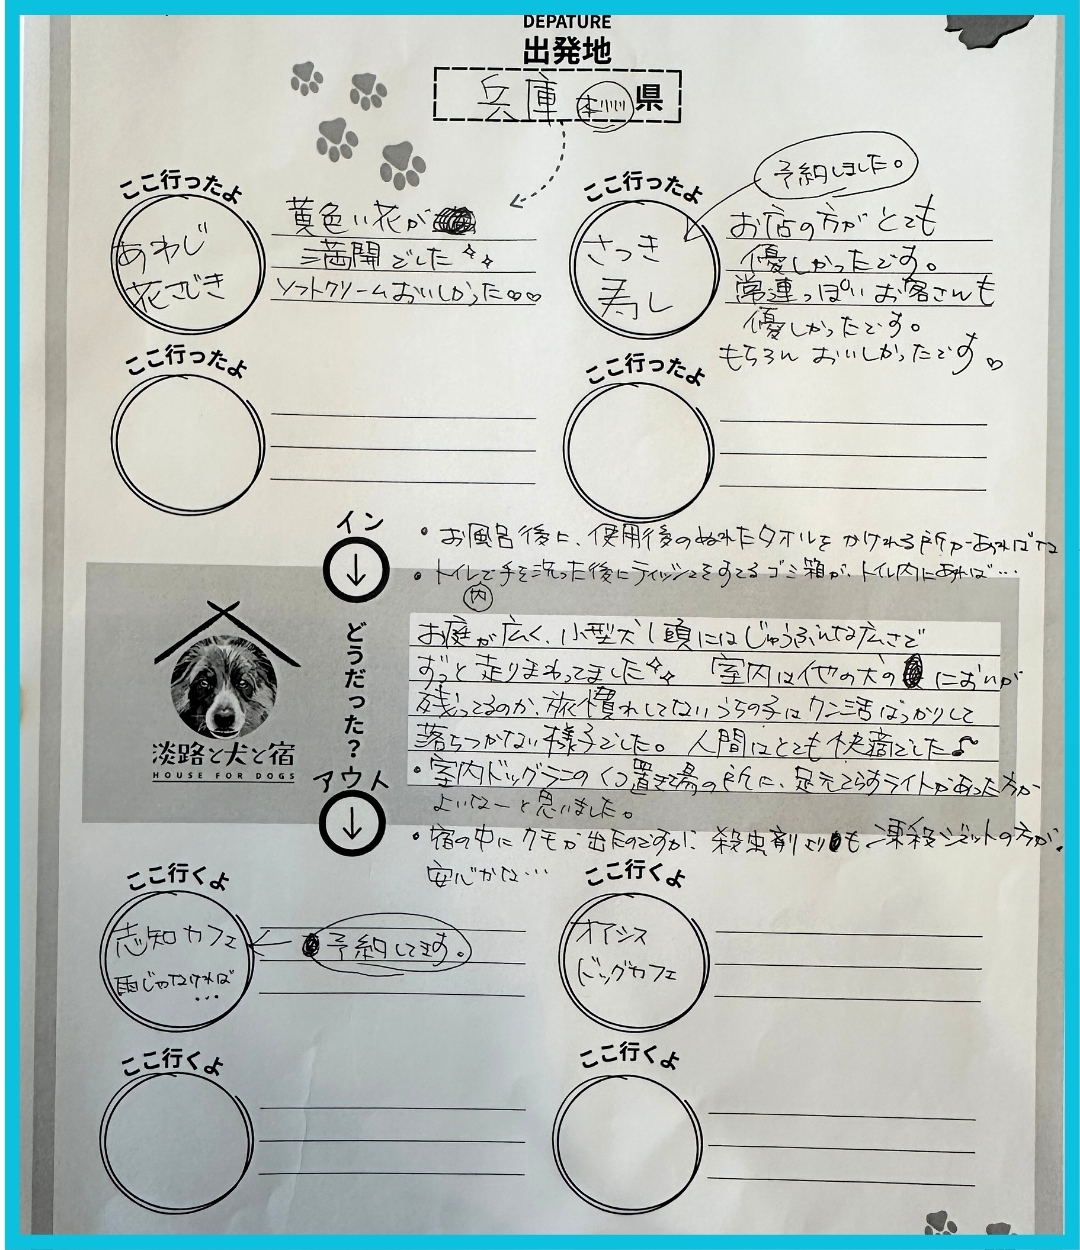 DEPATURE
出発地
兵庫 県
ここ行ったよ
あわじ
花さじき
黄色い花が
満開でした
ソフトクリームおいしかった♡♡
ここ行ったよ
さつき
寿し
予約しました。
お店の方がとても
優しかったです。
常連っぽいお客さんも
優しかったです。
もちろん おいしかったです♡
ここ行ったよ
ここ行ったよ
イン
↓
・お風呂後に、使用後のぬれたタオルをかけれる所があればな
・トイレで手を洗った後にティッシュをすてるゴミ箱が、トイレ内にあれば…
内
どうだった?
お庭が広く、小型犬1頭にはじゅうぶんな広さで
ずっと走りまわってました 室内は他の犬の においが
残ってるのか、旅慣れしてないうちの子はクン活ばっかりして
落ちつかない様子でした。 人間はとても快適でした♪
・室内ドッグランのくつ置き場の所に、足元てらすライトがあった方が
よいなーと思いました。
・宿の中にクモが出たのですが、殺虫剤よりも凍殺ジェットの方が、
安心かな…
淡路と犬と宿
HOUSE FOR DOGS
アウト
↓
ここ行くよ
志知カフェ
雨じゃなければ
…
予約してます。
ここ行くよ
オアシス
ドッグカフェ
ここ行くよ
ここ行くよ